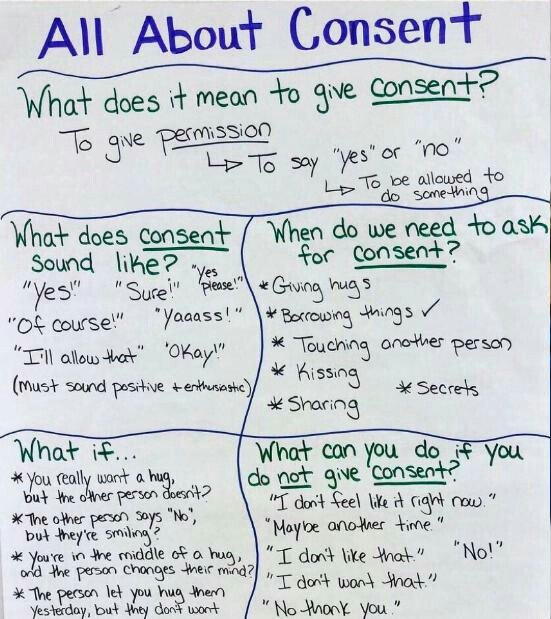 All About Consent
What does it mean to give consent?
To give permission
↳ To say "yes" or "no"
↳ To be allowed to
do something
What does consent
sound like?
"Yes!" "Sure!" "Yes please!"
"Of course!" "Yaaass!"
"I'll allow that" "Okay!"
(must sound positive + enthusiastic)
When do we need to ask
for consent?
* Giving hugs
* Borrowing things ✓
* Touching another person
* Kissing
* Secrets
* Sharing
What if...
* You really want a hug,
but the other person doesn't?
* The other person says "No",
but they're smiling?
* You're in the middle of a hug,
and the person changes their mind?
* The person let you hug them
yesterday, but they don't want
What can you do if you
do not give consent?
"I don't feel like it right now."
"Maybe another time."
"I don't like that." "No!"
"I don't want that."
"No thank you."